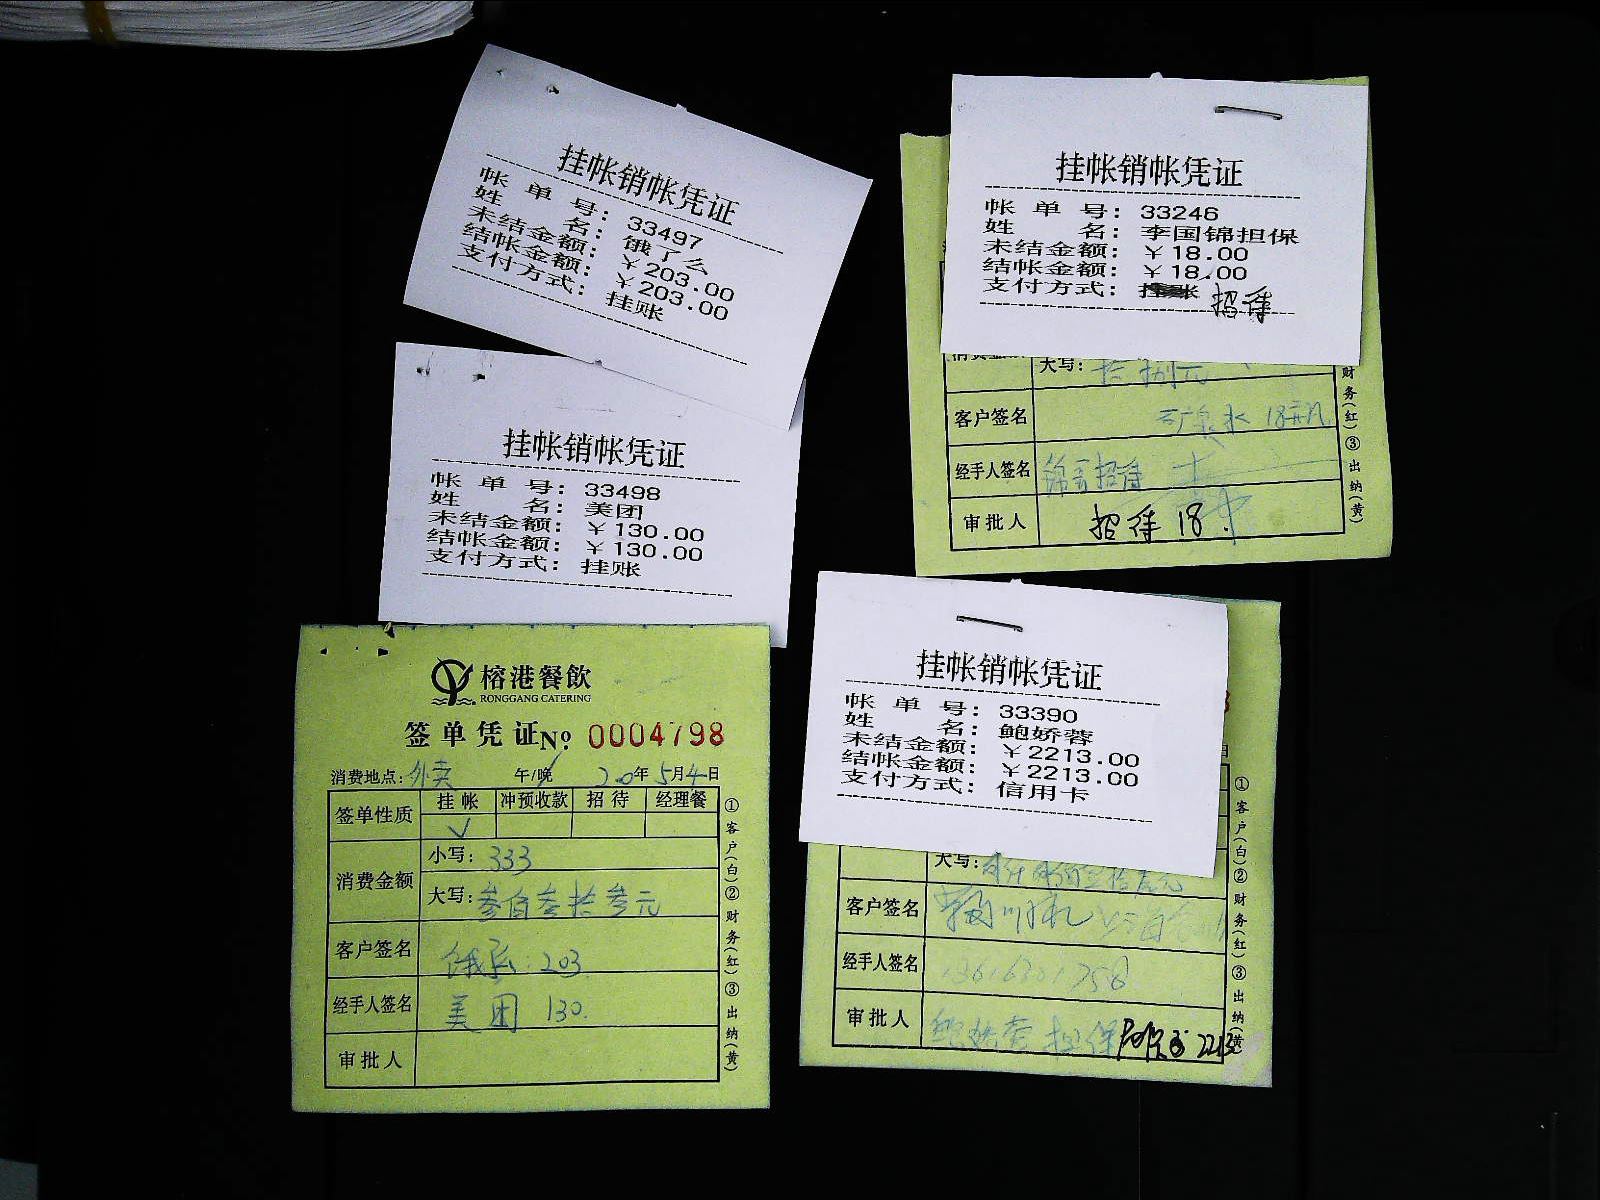 挂帐销帐凭证
帐单号: 33497
姓名: 饿了么
未结金额: ￥203.00
结帐金额: ￥203.00
支付方式: 挂账
挂帐销帐凭证
帐单号: 33498
姓名: 美团
未结金额: ￥130.00
结帐金额: ￥130.00
支付方式: 挂账
榕港餐飲
RONGGANG CATERING
签单凭证 No 0004798
消费地点: 外卖 午/晚 20年5月4日
签单性质 挂帐 冲预收款 招待 经理餐
✓
消费金额 小写: 333
大写: 叁佰叁拾叁元
客户签名 饿了么: 203
经手人签名 美团 130.
审批人
①客户(白)②财务(红)③出纳(黄)
挂帐销帐凭证
帐单号: 33246
姓名: 李国锦担保
未结金额: ￥18.00
结帐金额: ￥18.00
支付方式: 招待
大写: 拾捌元
客户签名 矿泉水 18元
经手人签名 招待
审批人 招待 18.
财务(红)③出纳(黄)
挂帐销帐凭证
帐单号: 33390
姓名: 鲍娇蓉
未结金额: ￥2213.00
结帐金额: ￥2213.00
支付方式: 信用卡
大写:
客户签名
经手人签名
审批人 鲍娇蓉 担保 2213
①客户(白)②财务(红)③出纳(黄)